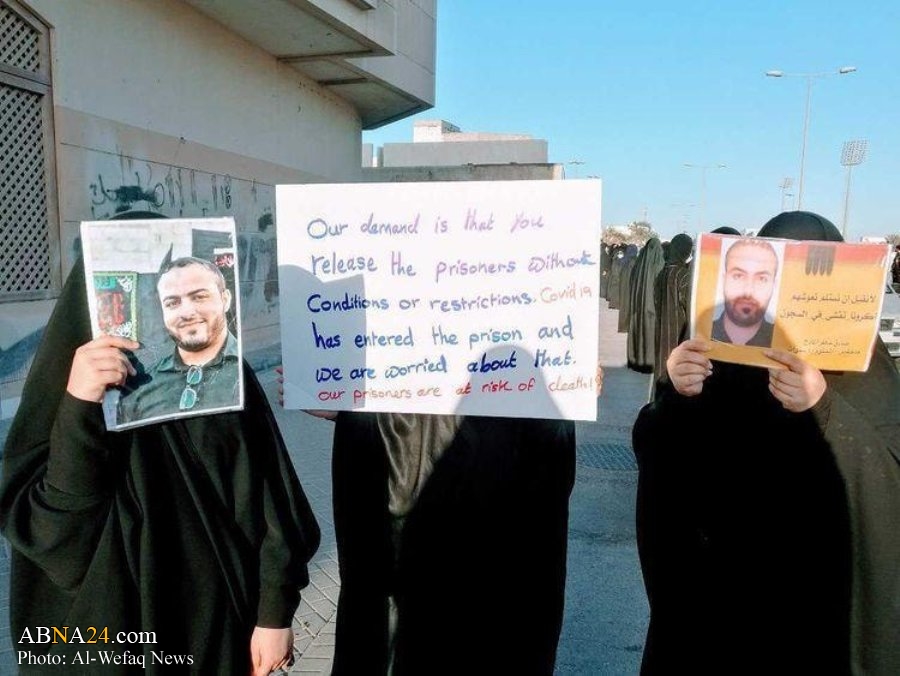 Our demand is that you
release the prisoners without
Conditions or restrictions. Covid 19
has entered the prison and
we are worried about that.
our prisoners are at risk of death!
لا نقبل إن نستلم نعوشهم
كرونا تفشى في السجون
ABNA24.com
Photo: Al-Wefaq News